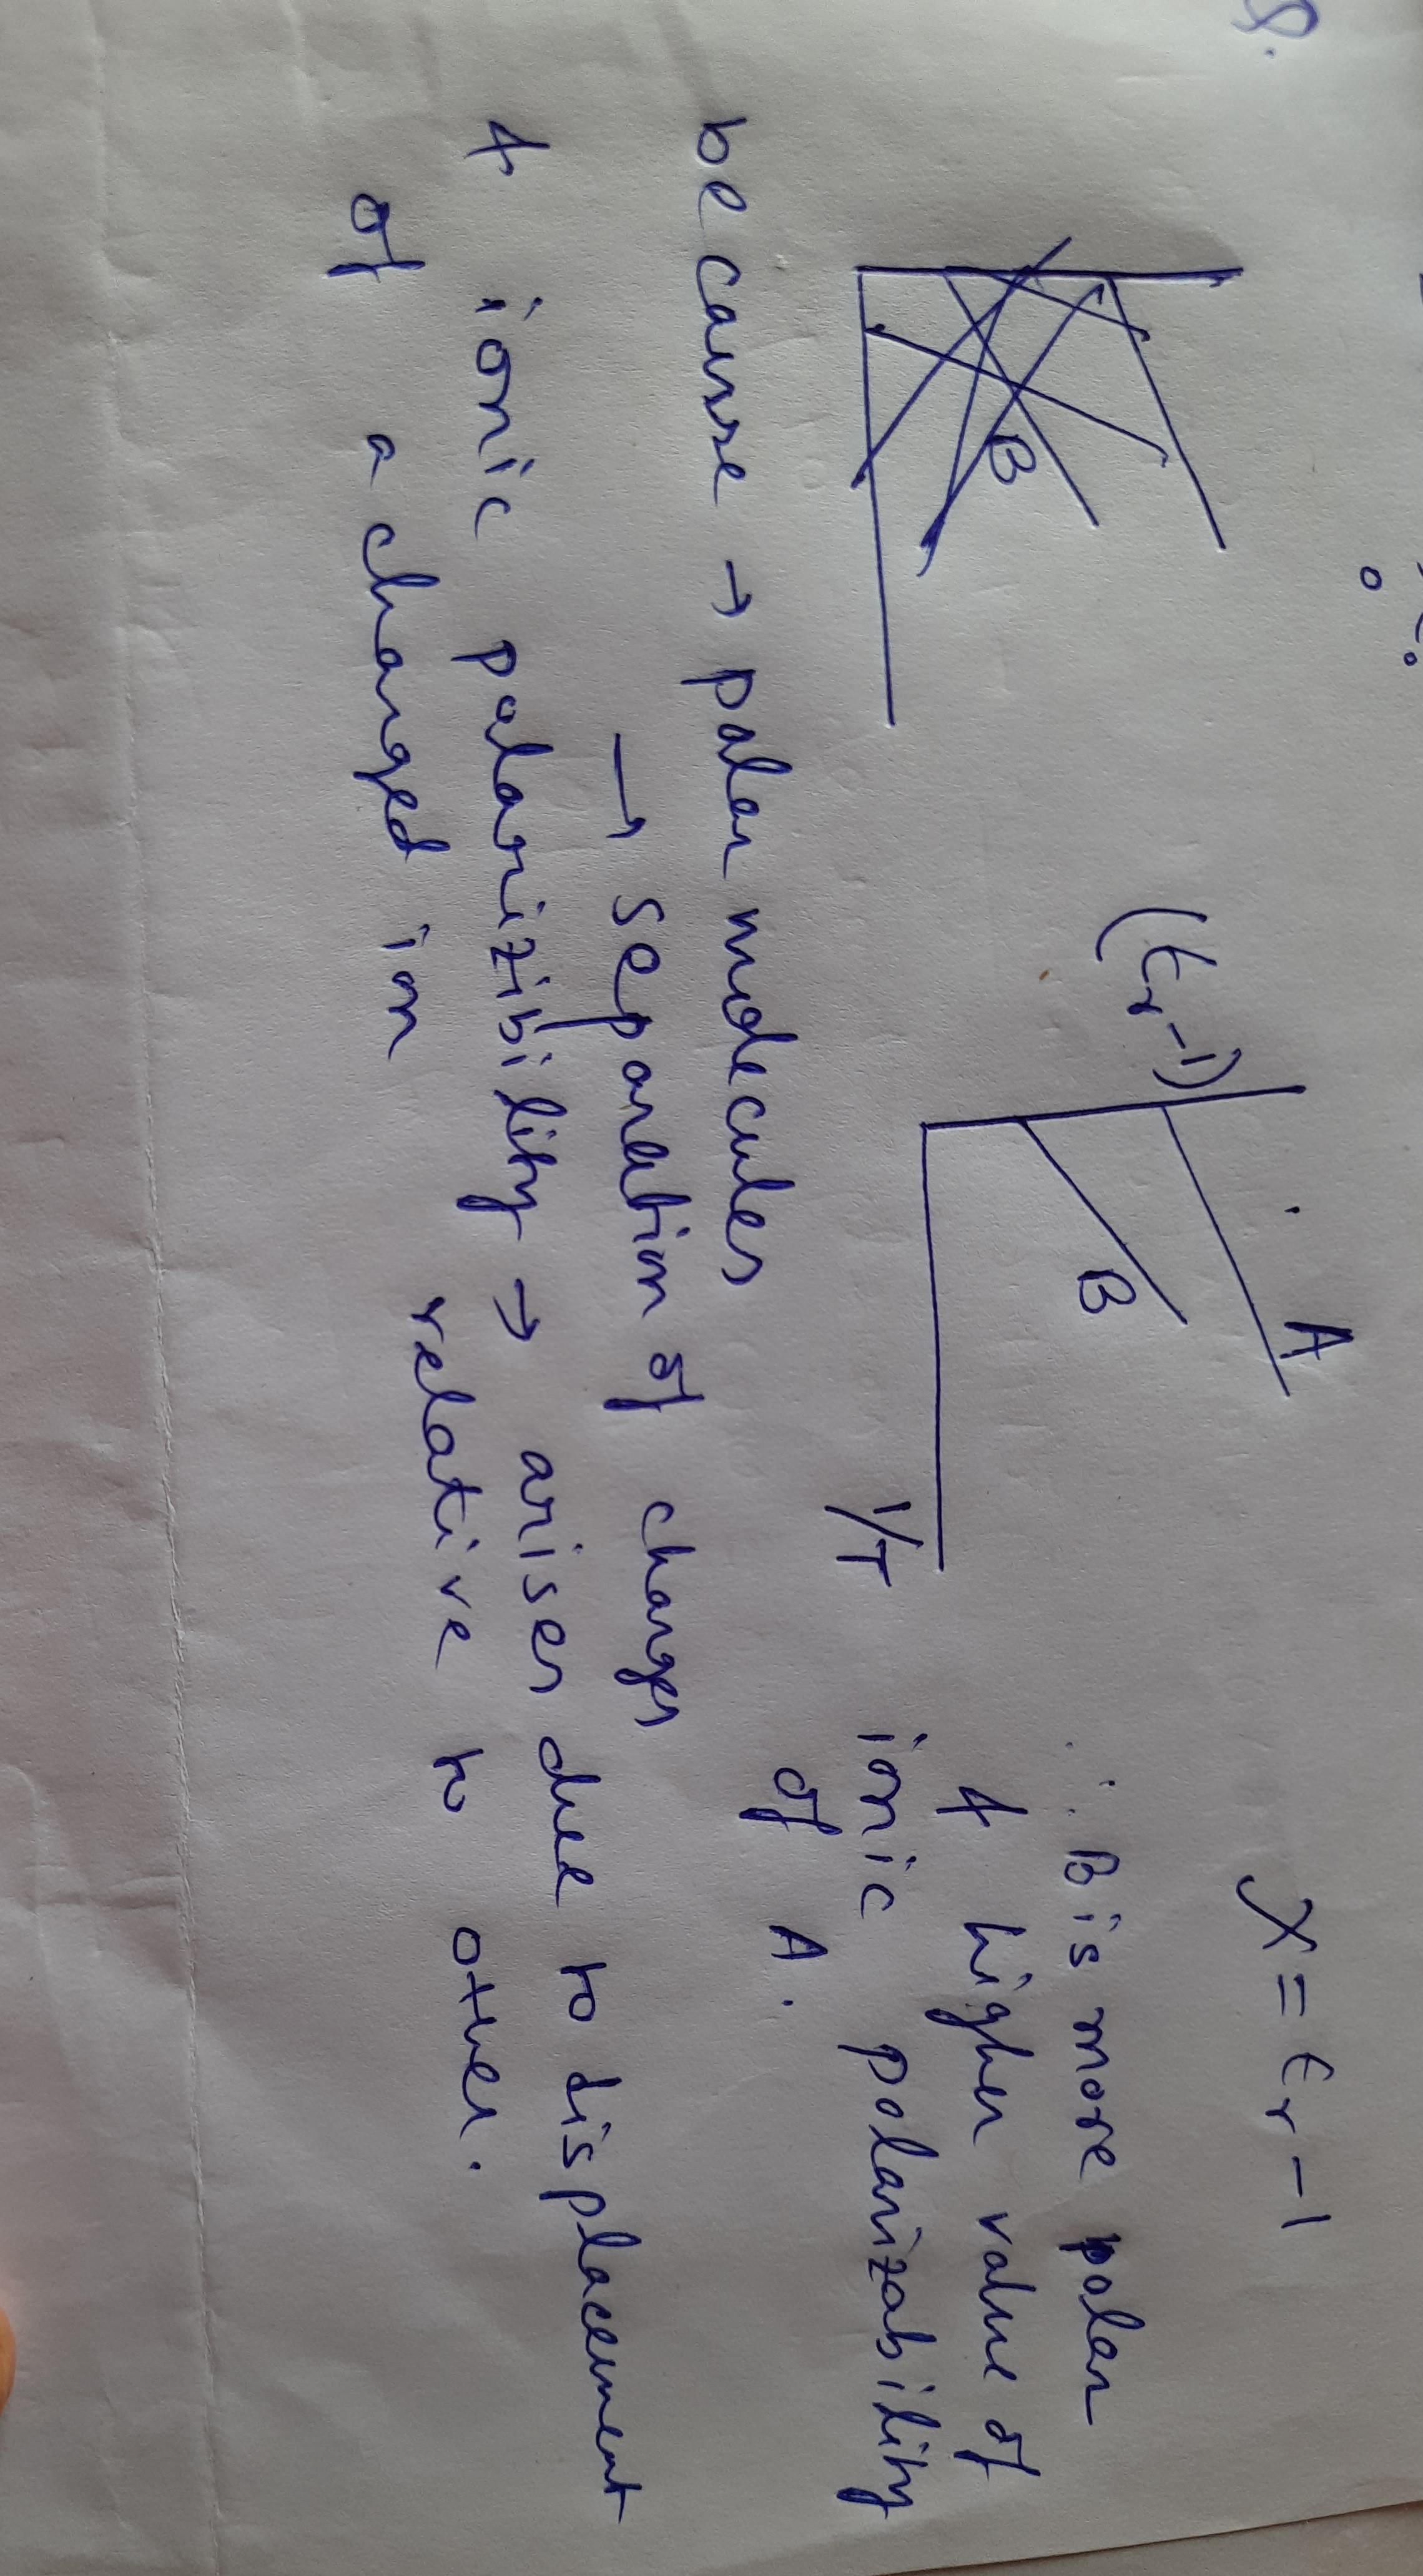 8.
B
(ϵr-1)
A
B
1/T
χ = ϵr - 1
∴ B is more polar
& higher value of
ionic polarizability
of A.
because → polar molecules
→ separation of charges
& ionic polarizibility → arises due to displacement
of a charged ion relative to other.